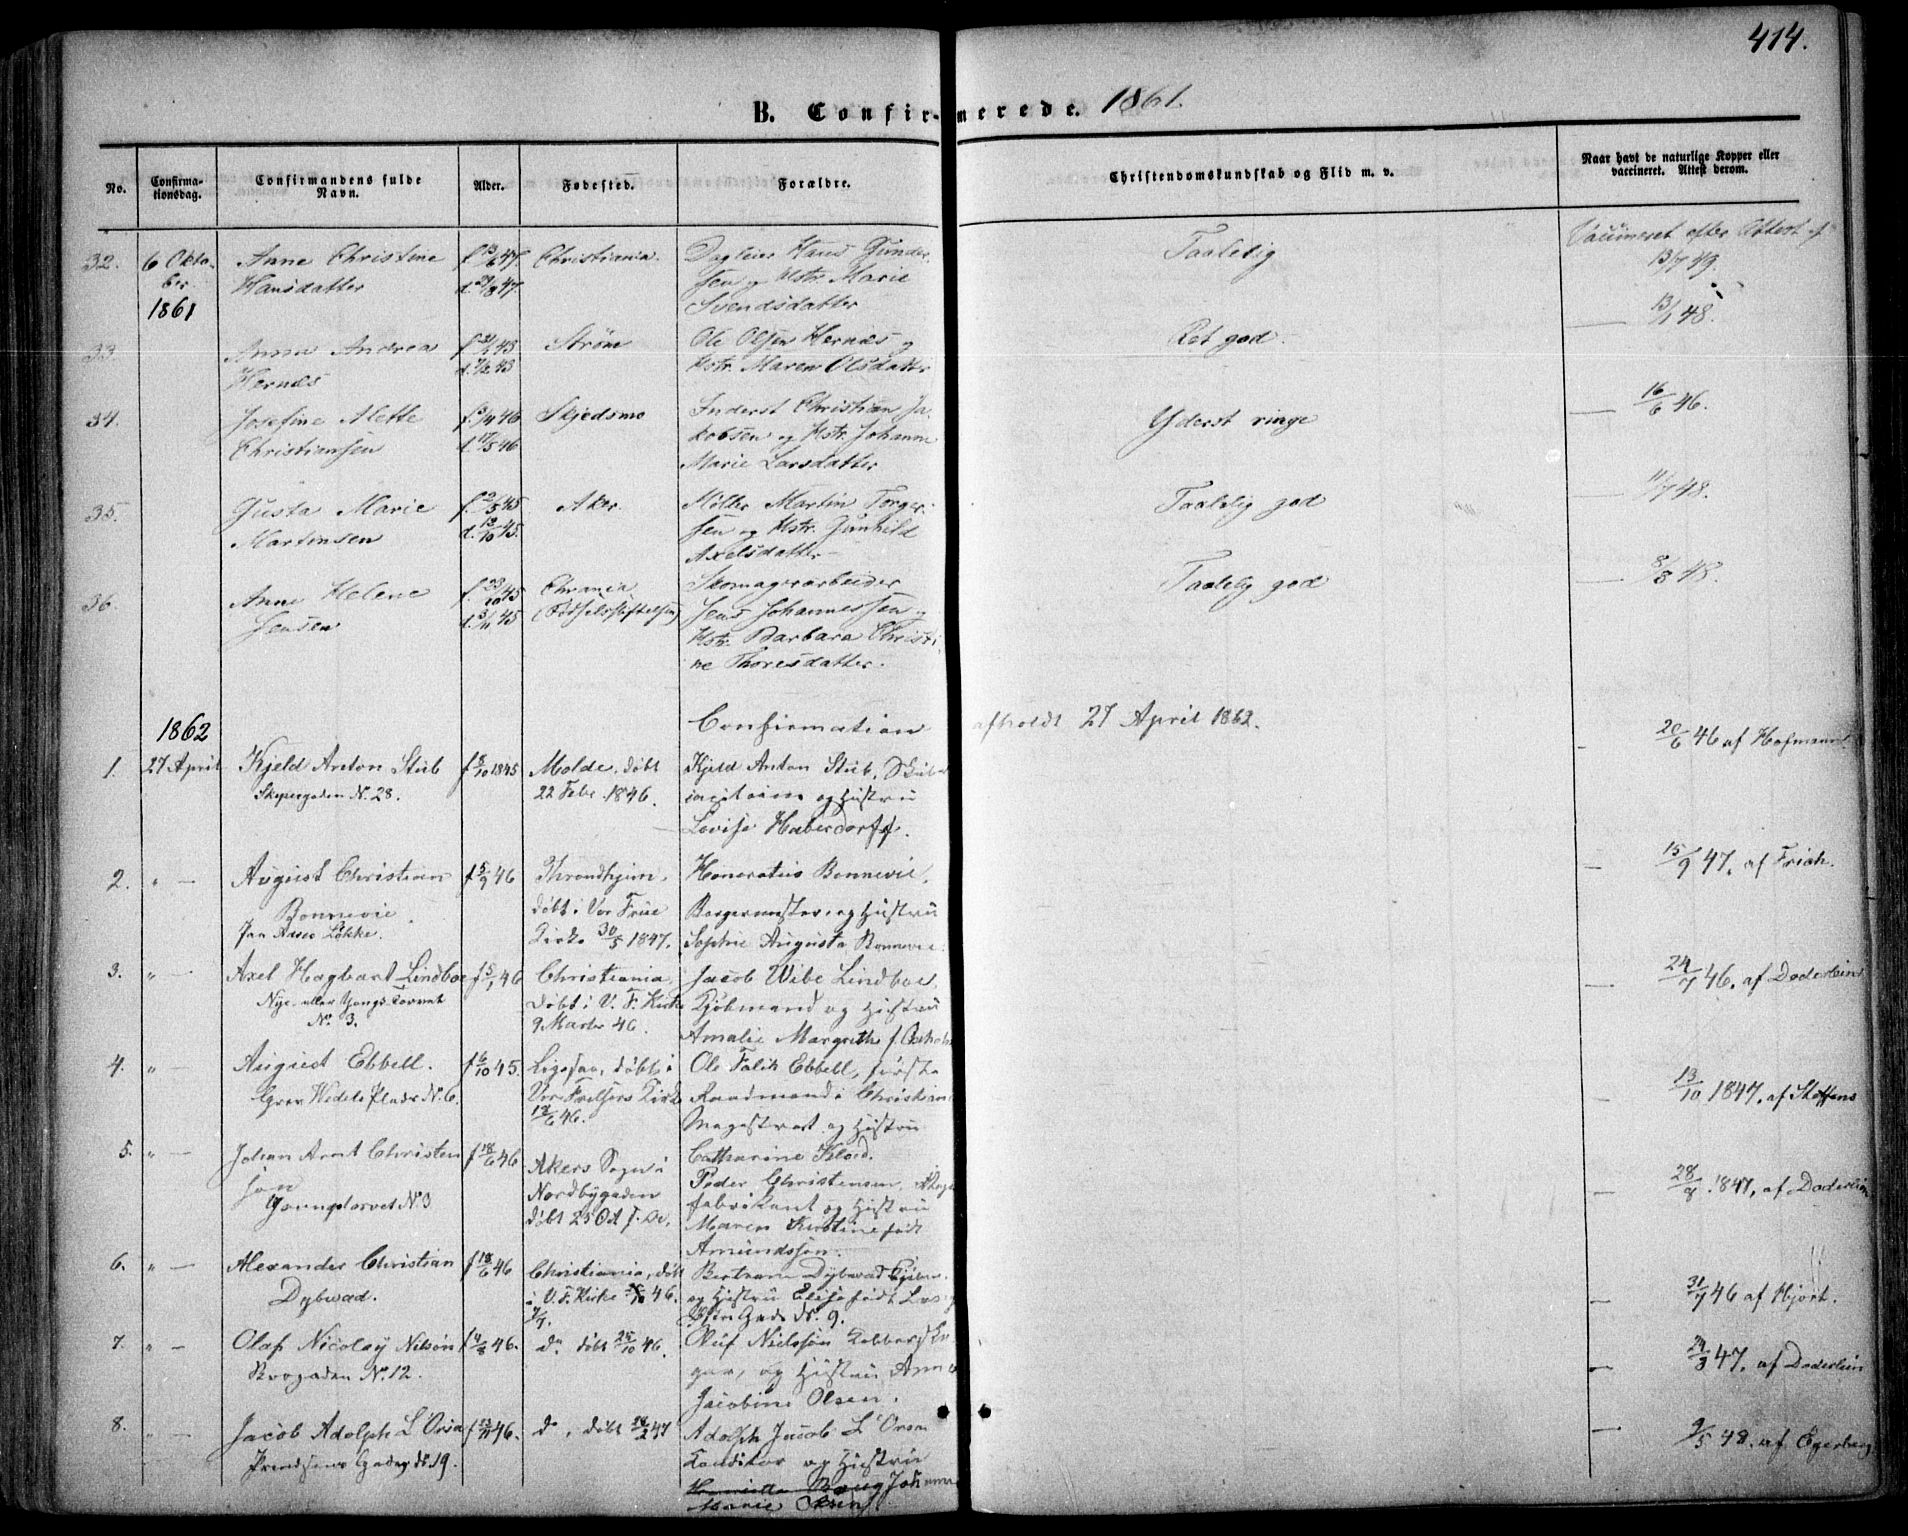 414.
B. Confirmerede. 1861.
No.
Confirma-
tionsdag.
Confirmandens fulde
Navn.
Alder.
Fødested.
Forældre.
Christendomskundskab og Flid m. v.
Naar havt de naturlige Kopper eller
vaccineret. Attest derom.
32. 6 Okto- Anne Christine Christiania. Hans Gunder Taalelig Vaccineret efter Attest af
ber Hansdatter sen og Hstr. Marie 13/7 49.
1861 Svendsdatter
33. Anna Andrea Strøm Ole Olsen Hernæs og Ret god. 13/1 48.
Hernæs Hstr. Maren Olsdatter
34. Josefine Alette Skjedsmo Inderst Christian Ja- Yderst ringe 16/6 46.
Christiansen kobsen og Hstr. Johanne
Marie Larsdatter
35. Gusta Marie Aker Møller Martin Torger- Taalelig god 11/7 48.
Martinsen d. 12/10 45. sen og Hstr. Gunhild
Axelsdatter
36. Anne Helene f. 23/10 45 Chrania Skomagerarbeider Taalelig god 8/8 48.
Jensen d. 3/11 45 (Fødselsstiftelsen) Jens Johannessen og
Hstr. Barbara Christi-
ne Thoresdatter.
1862 Confirmation afholdt 27 April 1862.
1. 27 April Kjeld Anton Stub f 8/10 1845 Molde, døbt Kjeld Anton Stub, 20/6 46 af Hofmann
Skippergaden N. 28. 22 Febr. 1846. og Hustru
Lovise Haberdorff.
2. " — August Christian f 5/9 46 Throndhjem, Honoratus Bonnevie, 15/9 47. af Frich.
Bonnevie døbt i Vor Frue Borgermester og Hustru
Løkke. Kirke 30/5 1847. Sophie Augusta Bonnevie
3. " — Axel Hagbart Lindboe f 15/1 46 Christiania, Jacob Wibe Lindboe, 24/7 46. af Døderlein
Nye- eller Yongs-Torvet døbt i V. F. Kirke Kjøbmand og Hustru
No. 3. 9 Marts 46. Amalie Margrethe f.
4. " — August Ebbell. f 6/10 45. døbt i Ole Falck Ebbell, første 13/10 1847. af Steffens
Grev Wedels Plads N. 6. Vor Frelsers Kirke Raadmand i Christiania
12/6 46. Magistrat og Hustru
5. " — Johan Arnt Christen f 18/6 46 Akers Sogn i Catharine
sen Nordbygaden Peder Christensen, 28/8 1847, af Døderlein
Youngstorvet N. 3 døbt 25 Oct. fabrikant og Hustru
Maren Kirstine født
Amundsen.
6. " — Alexander Christian f 18/6 46 Christiania, døbt Bertram Dybwad
Dybwad. i V. F. Kirke og Hustru Elise født 31/7 46 af Hjort.
Gade N. 9.
7. " — Olaf Nicolay Nilsen f 4/8 46. do døbt 25/10 46. Oluf Nielsen 24/3 47. af Døderlein
Brogaden No. 12. og Hustru Anne
Jacobine Olsen.
8. " — Jacob Adolph L'Orsa 46. do, døbt 28/2 47 Adolph Jacob L'Orsa 9/5 48. af Egeberg
Prindsens Gade N. 19. Konditor og Hustru
Johanne
Marie Olsen.